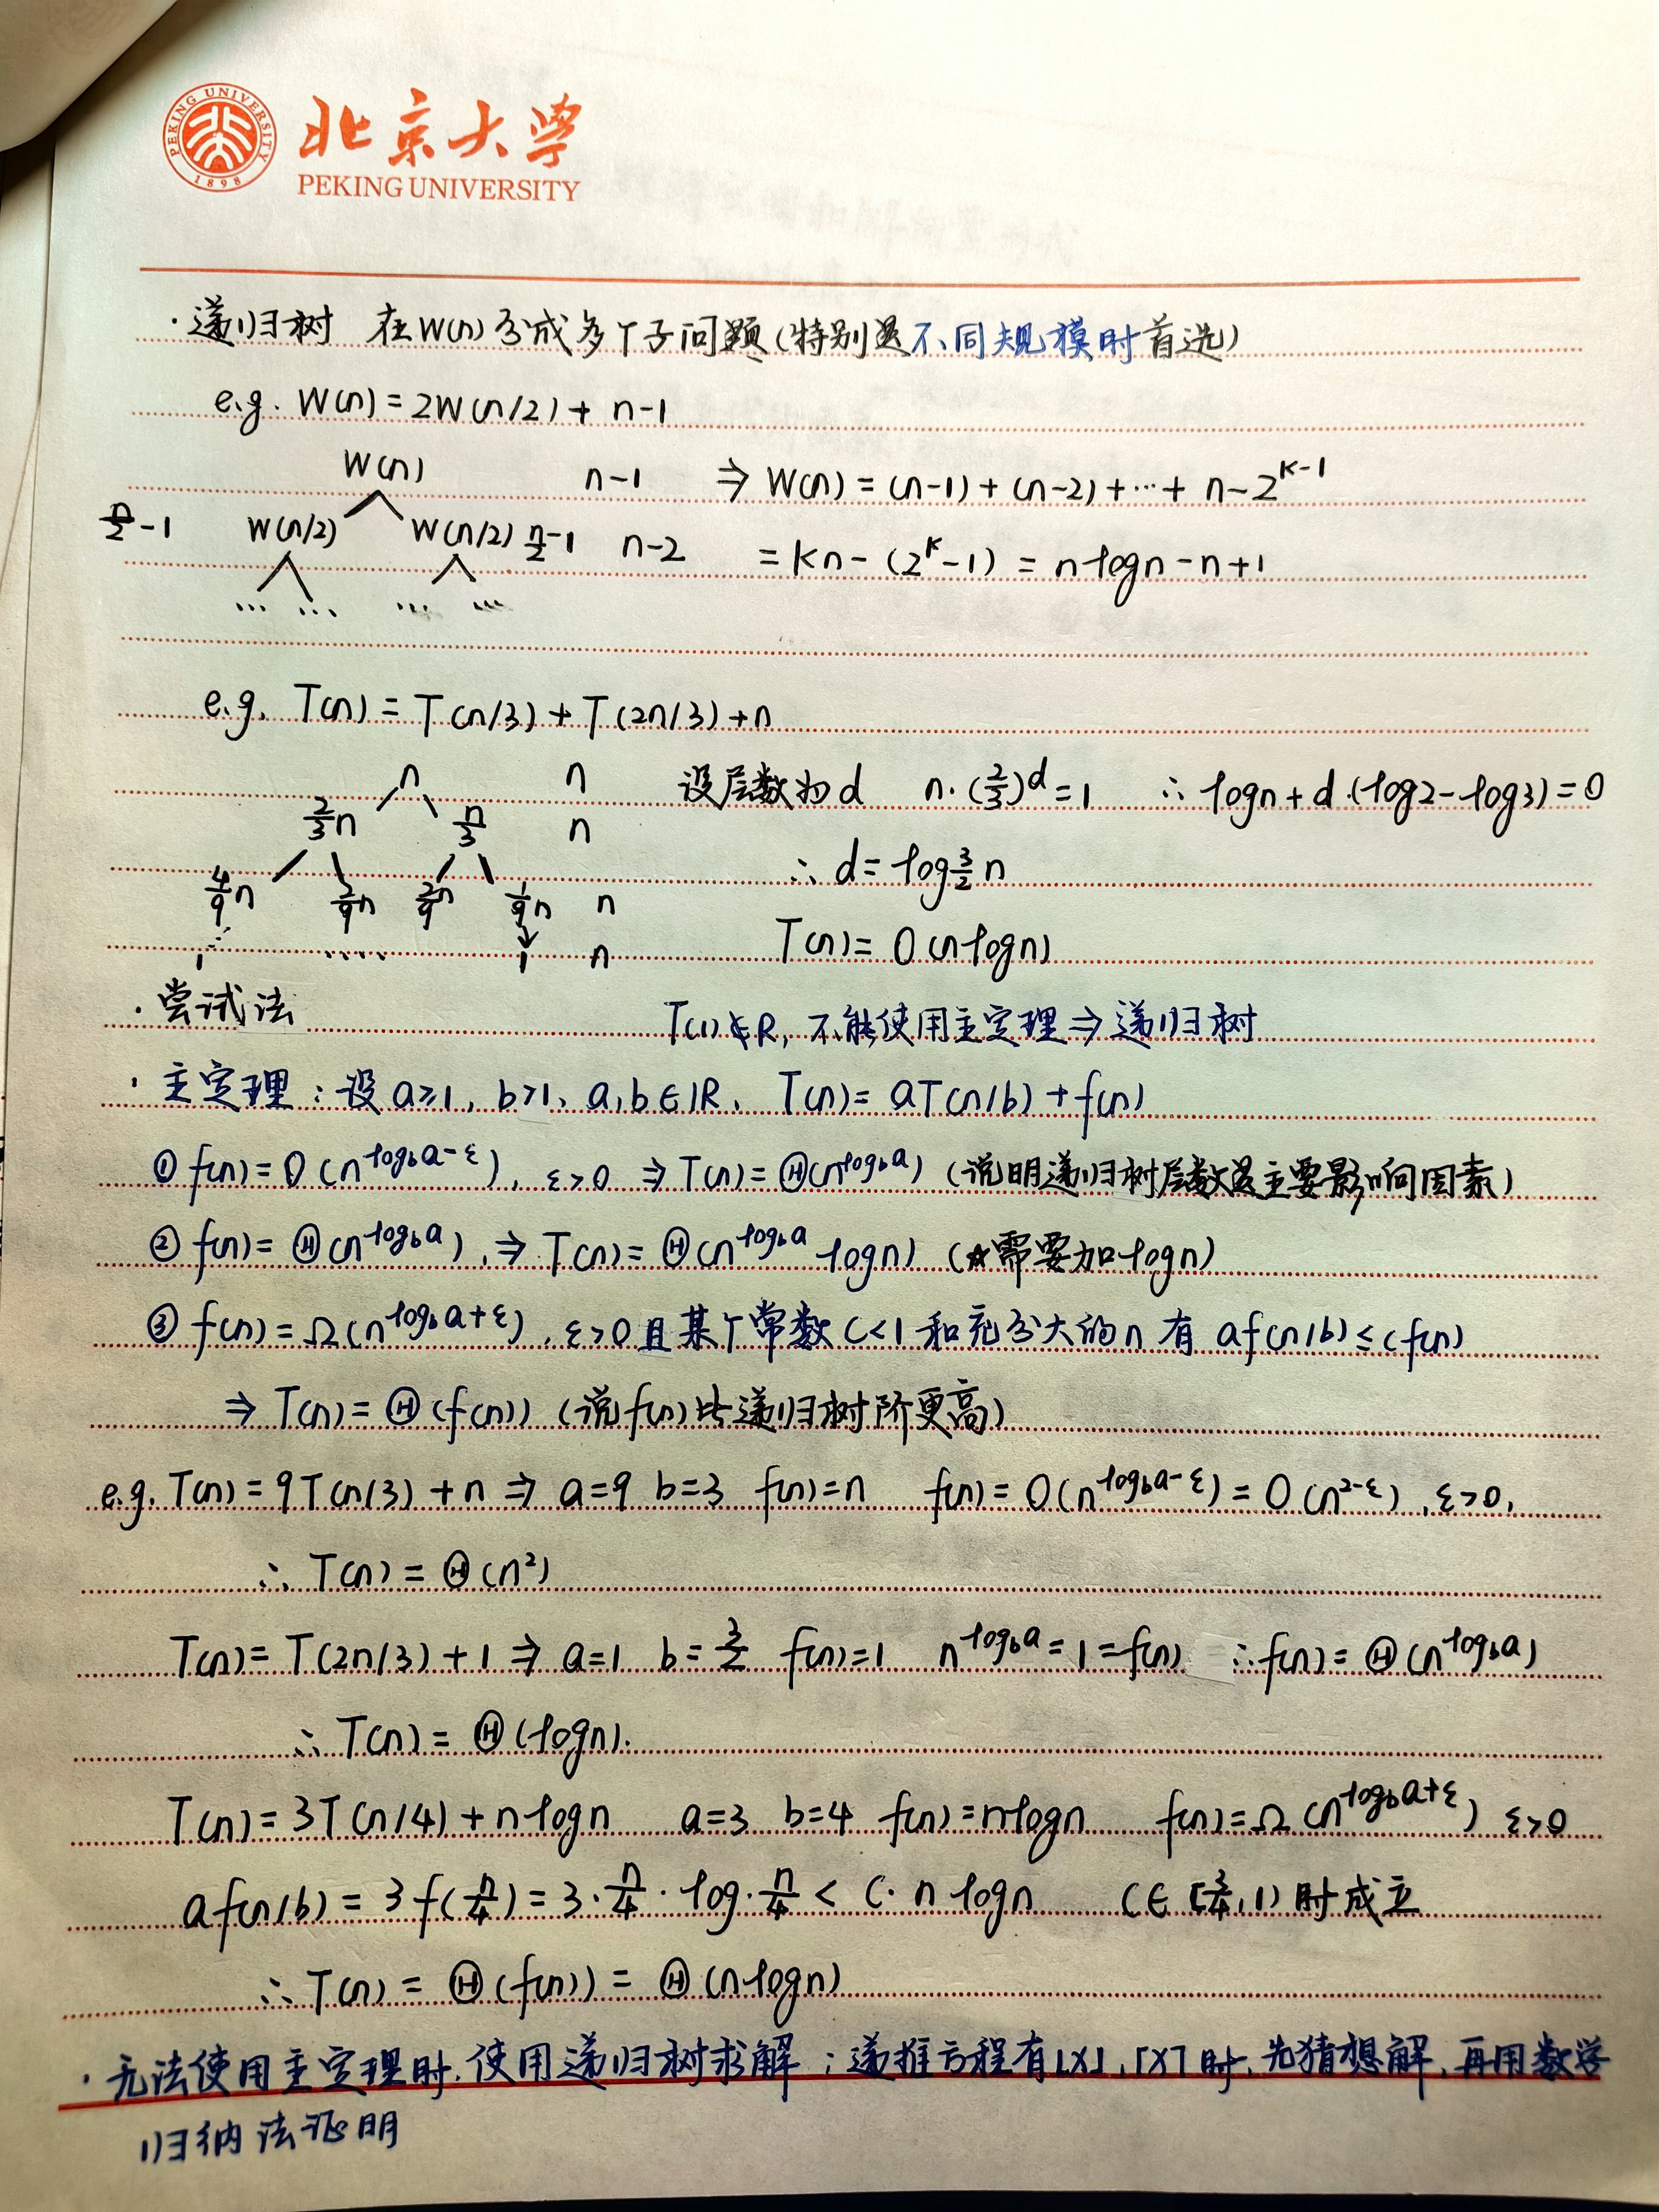 PEKING UNIVERSITY
1898
北京大学
PEKING UNIVERSITY
·递归树 在W(n)分成多个子问题(特别是不同规模时首选)
e.g. W(n)=2W(n/2)+ n-1
W(n) n-1 ⇒ W(n)=(n-1)+(n-2)+…+ n-2^{k-1}
n/2-1 W(n/2) W(n/2) n/2-1 n-2 =kn-(2^k-1)=nlogn-n+1
… … … …
e.g. T(n)=T(n/3)+T(2n/3)+n
n n 设层数为d n·(2/3)^d=1 ∴ logn+d·(log2-log3)=0
2/3n n/3 n
4/9n 2/9n 2/9n 1/9n n ∴ d=log 3/2 n
1 ….. 1 n T(n)=O(nlogn)
·尝试法 T(1)∉R, 不能使用主定理⇒递归树
·主定理:设a≥1, b>1, a,b∈R, T(n)=aT(n/b)+f(n)
① f(n)=O(n^{log_b a-ε}), ε>0 ⇒ T(n)=Θ(n^{log_b a}) (说明递归树层数是主要影响因素)
② f(n)=Θ(n^{log_b a}), ⇒ T(n)=Θ(n^{log_b a} logn) (☆需要加logn)
③ f(n)=Ω(n^{log_b a+ε}), ε>0且某个常数c<1和充分大的n有af(n/b)≤cf(n)
⇒ T(n)=Θ(f(n)) (说f(n)比递归树阶更高)
e.g. T(n)=9T(n/3)+n ⇒ a=9 b=3 f(n)=n f(n)=O(n^{log_b a-ε})=O(n^{2-ε}), ε>0,
∴ T(n)=Θ(n²)
T(n)=T(2n/3)+1 ⇒ a=1 b=3/2 f(n)=1 n^{log_b a}=1=f(n) ∴f(n)=Θ(n^{log_b a})
∴ T(n)=Θ(logn).
T(n)=3T(n/4)+nlogn a=3 b=4 f(n)=nlogn f(n)=Ω(n^{log_b a+ε}) ε>0
af(n/b)=3f(n/4)=3·n/4·log·n/4<c·nlogn c∈[3/4,1)时成立
∴ T(n)=Θ(f(n))=Θ(nlogn)
·无法使用主定理时,使用递归树求解;递推方程有⌊x⌋,⌈x⌉时,先猜想解,再用数学
归纳法证明